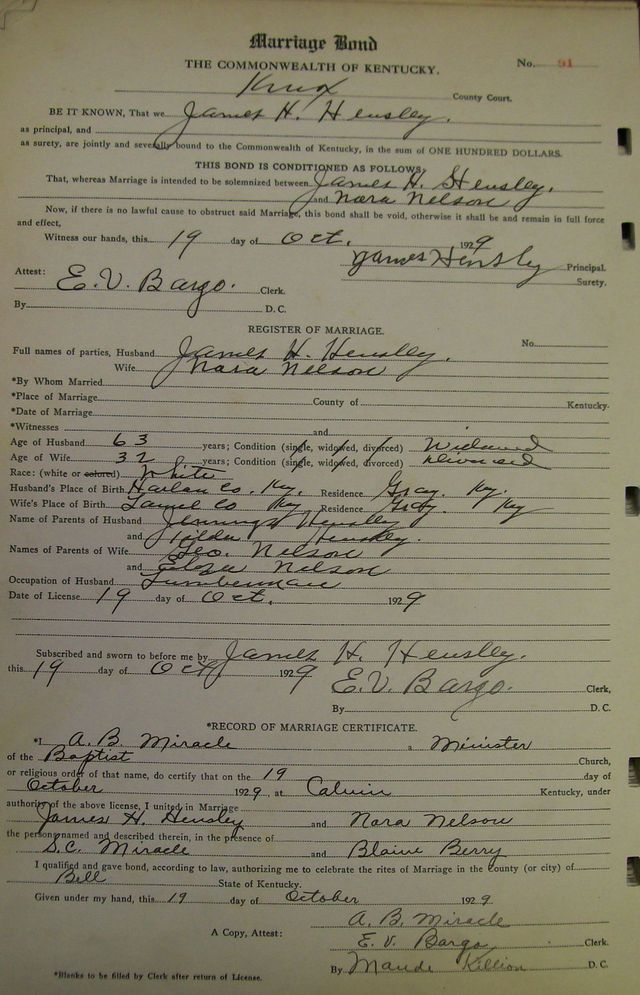 Marriage Bond
THE COMMONWEALTH OF KENTUCKY. No. 91
Knox County Court.
BE IT KNOWN, That we James H. Hensley.
as principal, and
as surety, are jointly and severally bound to the Commonwealth of Kentucky, in the sum of ONE HUNDRED DOLLARS.
THIS BOND IS CONDITIONED AS FOLLOWS
That, whereas Marriage is intended to be solemnized between James H. Hensley.
and Nora Nelson
Now, if there is no lawful cause to obstruct said Marriage, this bond shall be void, otherwise it shall be and remain in full force
and effect,
Witness our hands, this 19 day of Oct. 1929
James Hensley Principal.
Attest: E. V. Bargo. Clerk. Surety.
By D. C.
REGISTER OF MARRIAGE.
Full names of parties, Husband James H. Hensley. No.
Wife Nara Nelson
*By Whom Married
*Place of Marriage County of Kentucky.
*Date of Marriage
*Witnesses and
Age of Husband 63 years; Condition (single, widowed, divorced) Widowed
Age of Wife 32 years; Condition (single, widowed, divorced) Divorced
Race: (white or colored) White
Husband's Place of Birth Harlan Co. Ky. Residence Gray. Ky.
Wife's Place of Birth Laurel Co Ky Residence Gray. Ky
Name of Parents of Husband Jennings Hensley
and Hensley.
Names of Parents of Wife Geo. Nelson
and Nelson
Occupation of Husband Lumberman
Date of License 19 day of Oct. 1929
Subscribed and sworn to before me by James H. Hensley.
this 19 day of Oct 1929 E. V. Bargo. Clerk,
By D. C.
*RECORD OF MARRIAGE CERTIFICATE.
*I A. B. Miracle a Minister
of the Baptist Church,
or religious order of that name, do certify that on the 19 day of
October 1929, at Calvin Kentucky, under
authority of the above license, I united in Marriage
James H. Hensley and Nara Nelson
the persons named and described therein, in the presence of
S. C. Miracle and Blaine Berry
I qualified and gave bond, according to law, authorizing me to celebrate the rites of Marriage in the County (or city) of
Bell State of Kentucky.
Given under my hand, this 19 day of October 1929.
A. B. Miracle
A Copy, Attest: E. V. Bargo Clerk.
By Maude Killion D. C.
*Blanks to be filled by Clerk after return of License.